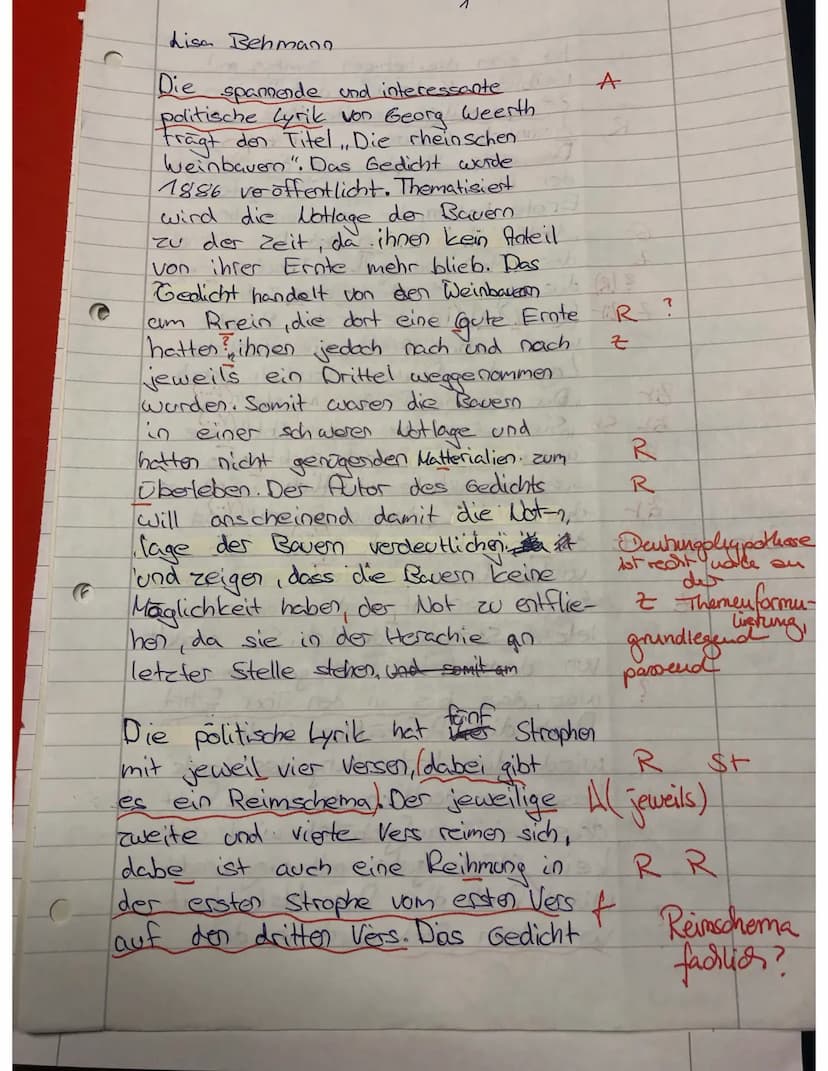 1
Lisa Behmann
Die spannende und interessante A
politische Lyrik von Georg Weerth
trägt den Titel „Die rheinschen
Weinbauern". Das Gedicht wurde
1886 veröffentlicht. Thematisiert
wird die Notlage der Bauern
zu der Zeit, da ihnen kein Anteil
von ihrer Ernte mehr blieb. Das
Gedicht handelt von den Weinbauern
am Rrein, die dort eine gute Ernte R ?
hatten ? ihnen jedoch nach und nach Z
jeweils ein Drittel weggenommen
wurden. Somit waren die Bauern
in einer schweren Notlage und
hatten nicht genügenden Matterialien zum R
Überleben. Der Autor des Gedichts R
will anscheinend damit die Not-
lage der Bauern verdeutlichen Deutungshypothese
und zeigen, dass die Bauern keine ist recht nahe an der
Möglichkeit haben, der Not zu entflie- Z Themenformu-
lierung,
hen, da sie in der Herachie an grundlegend
letzter Stelle stehen, und somit am passend
Die politische Lyrik hat fünf Strophen
mit jeweil vier Versen, (dabei gibt R St
es ein Reimschema). Der jeweilige A (jeweils)
zweite und vierte Vers reimen sich,
dabe ist auch eine Reihmung in R R
der ersten Strophe vom ersten Vers f
auf den dritten Vers. Das Gedicht Reimschema
fachlich?